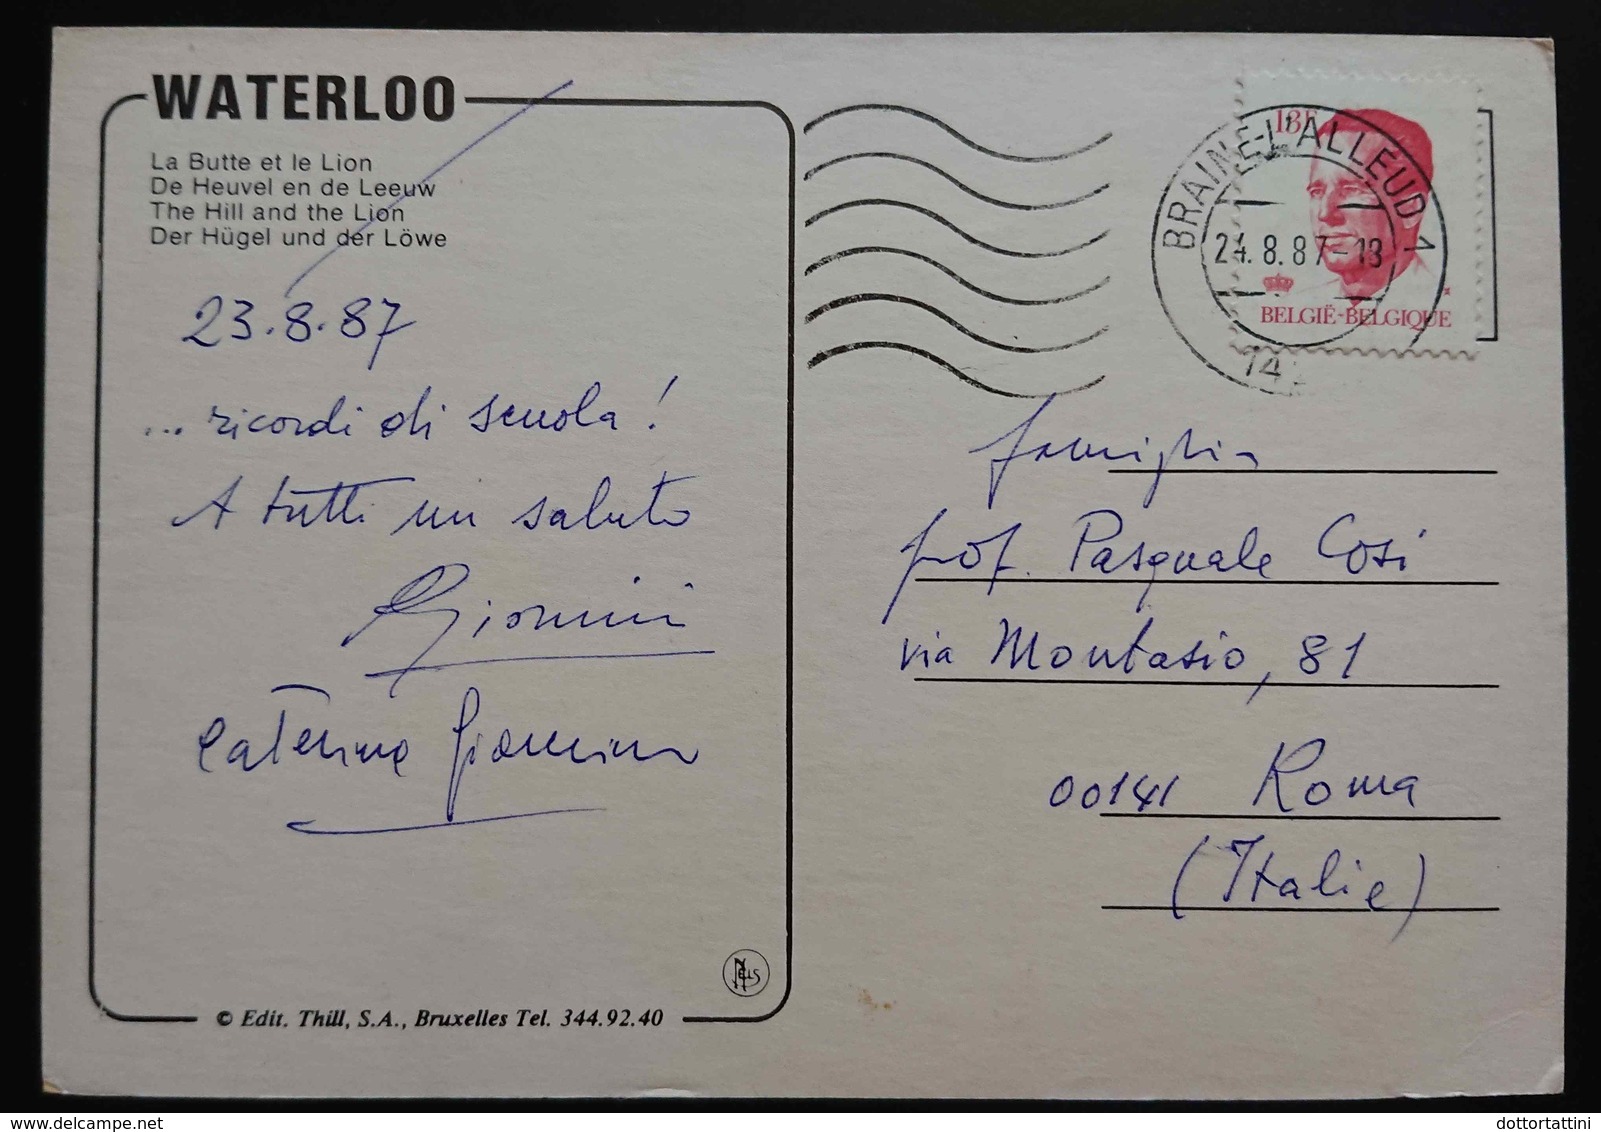 WATERLOO
La Butte et le Lion
De Heuvel en de Leeuw
The Hill and the Lion
Der Hügel und der Löwe
23.8.87
... ricordi di scuola!
A tutti un saluto
Caterina
© Edit. Thill, S.A., Bruxelles Tel. 344.92.40
NELS
13F
BELGIË-BELGIQUE
BRAINE-L'ALLEUD 1
24.8.87-13
14
famiglia
prof. Pasquale Cosi
via Montasio, 81
00141 Roma
(Italie)
delcampe.net
dottortattini